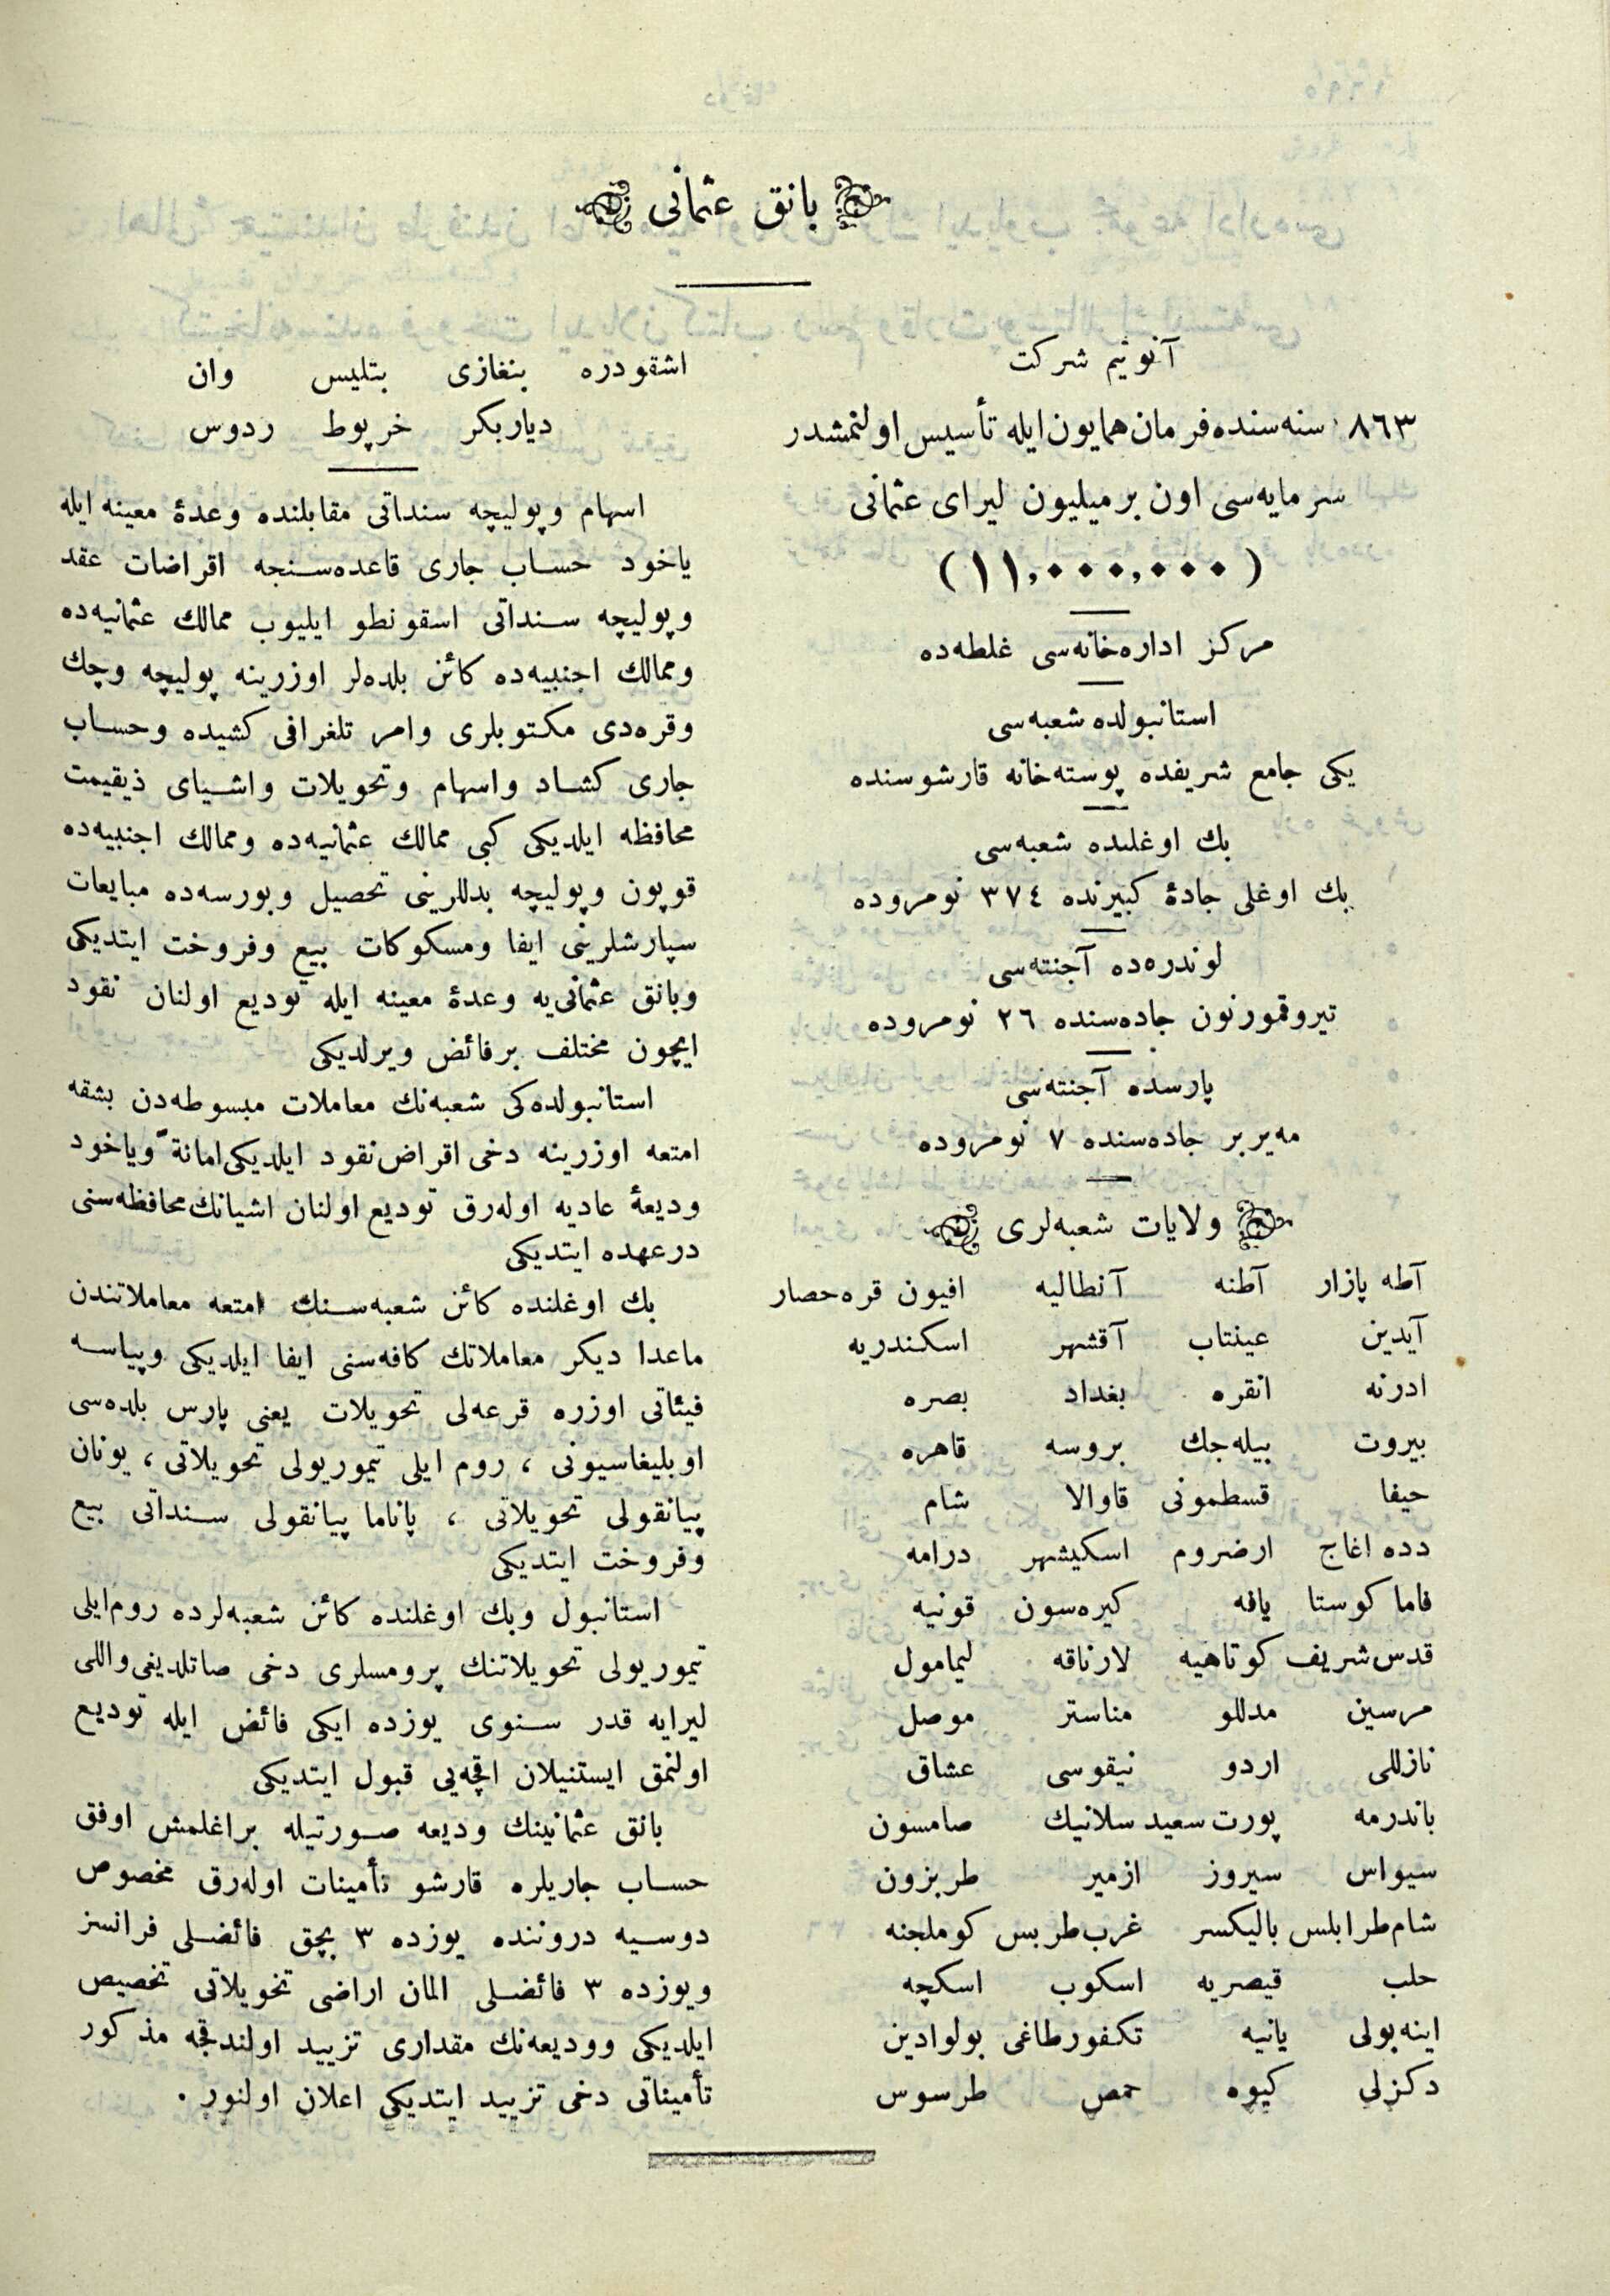 بانق عثمانی
آنونیم شرکت
٨٦٣ سنه‌سنده فرمان همایون ایله تأسیس اولنمشدر
سرمایه‌سی اون بر میلیون لیرای عثمانی
(١١,٠٠٠,٠٠٠)
مرکز اداره‌خانه‌سی غلطه‌ده
استانبولده شعبه‌سی
یکی جامع شریفده پوسته‌خانه قارشوسنده
بك اوغلنده شعبه‌سی
بك اوغلی جادۀ کبیرنده ٣٧٤ نومروده
لوندره‌ده آجنته‌سی
تیروقمورنون جاده‌سنده ٢٦ نومروده
پارسده آجنته‌سی
مه‌یربر جاده‌سنده ٧ نومروده
ولایات شعبه‌لری
آطه پازار آطنه آنطالیه افیون قره‌حصار
آیدین عینتاب آقشهر اسکندریه
ادرنه انقره بغداد بصره
بیروت بیله‌جك بروسه قاهره
حیفا قسطمونی قاوالا شام
دده اغاج ارضروم اسکیشهر درامه
فاماکوستا یافه کیره‌سون قونیه
قدس‌شریف کوتاهیه لارناقه لیمامول
مرسین مدللو مناستر موصل
نازللی اردو نیقوسی عشاق
باندرمه پورت سعید سلانیك صامسون
سیواس سیروز ازمیر طربزون
شام‌طرابلس بالیکسر غرب‌طربس کوملجنه
حلب قیصریه اسکوب اسکچه
اینه‌بولی یانیه تکفورطاغی بولوادین
دکزلی کیوه حمص طرسوس
اشقودره بنغازی بتلیس وان
دیاربکر خرپوط ردوس
اسهام وپولیچه سنداتی مقابلنده وعدۀ معینه ایله
یاخود حساب جاری قاعده‌سنجه اقراضات عقد
وپولیچه سنداتی اسقونطو ایلیوب ممالك عثمانیه‌ده
وممالك اجنبیه‌ده کائن بلده‌لر اوزرینه پولیچه وچك
وقره‌دی مکتوبلری وامر تلغرافی کشیده وحساب
جاری کشاد واسهام وتحویلات واشیای ذیقیمت
محافظه ایلدیکی کبی ممالك عثمانیه‌ده وممالك اجنبیه‌ده
قوپون وپولیچه بدللرینی تحصیل وبورسه‌ده مبایعات
سپارشلرینی ایفا ومسکوکات بیع وفروخت ایتدیکی
وبانق عثمانی‌یه وعدۀ معینه ایله تودیع اولنان نقود
ایچون مختلف برفائض ویرلدیکی
استانبولده‌کی شعبه‌نك معاملات مبسوطه‌دن بشقه
امتعه اوزرینه دخی اقراض نقود ایلدیکی امانةً ویاخود
ودیعۀ عادیه اوله‌رق تودیع اولنان اشیانك محافظه‌سنی
درعهده ایتدیکی
بك اوغلنده کائن شعبه‌سنك امتعه معاملاتندن
ماعدا دیکر معاملاتك کافه‌سنی ایفا ایلدیکی وپیاسه
فیئاتی اوزره قرعه‌لی تحویلات یعنی پارس بلده‌سی
اوبلیغاسیونی ، روم ایلی تیموریولی تحویلاتی ، یونان
پیانقولی تحویلاتی ، پاناما پیانقولی سنداتی بیع
وفروخت ایتدیکی
استانبول وبك اوغلنده کائن شعبه‌لرده روم‌ایلی
تیموریولی تحویلاتنك پرومسلری دخی صاتلدیغی واللی
لیرایه قدر سنوی یوزده ایکی فائض ایله تودیع
اولنمق ایستنیلان اقچه‌یی قبول ایتدیکی
بانق عثمانینك ودیعه صورتیله براغلمش اوفق
حساب جاریلره قارشو تأمینات اوله‌رق مخصوص
دوسیه دروننده یوزده ٣ بچق فائضلی فرانسز
ویوزده ٣ فائضلی المان اراضی تحویلاتی تخصیص
ایلدیکی وودیعه‌نك مقداری تزیید اولندقجه مذکور
تأمیناتی دخی تزیید ایتدیکی اعلان اولنور .